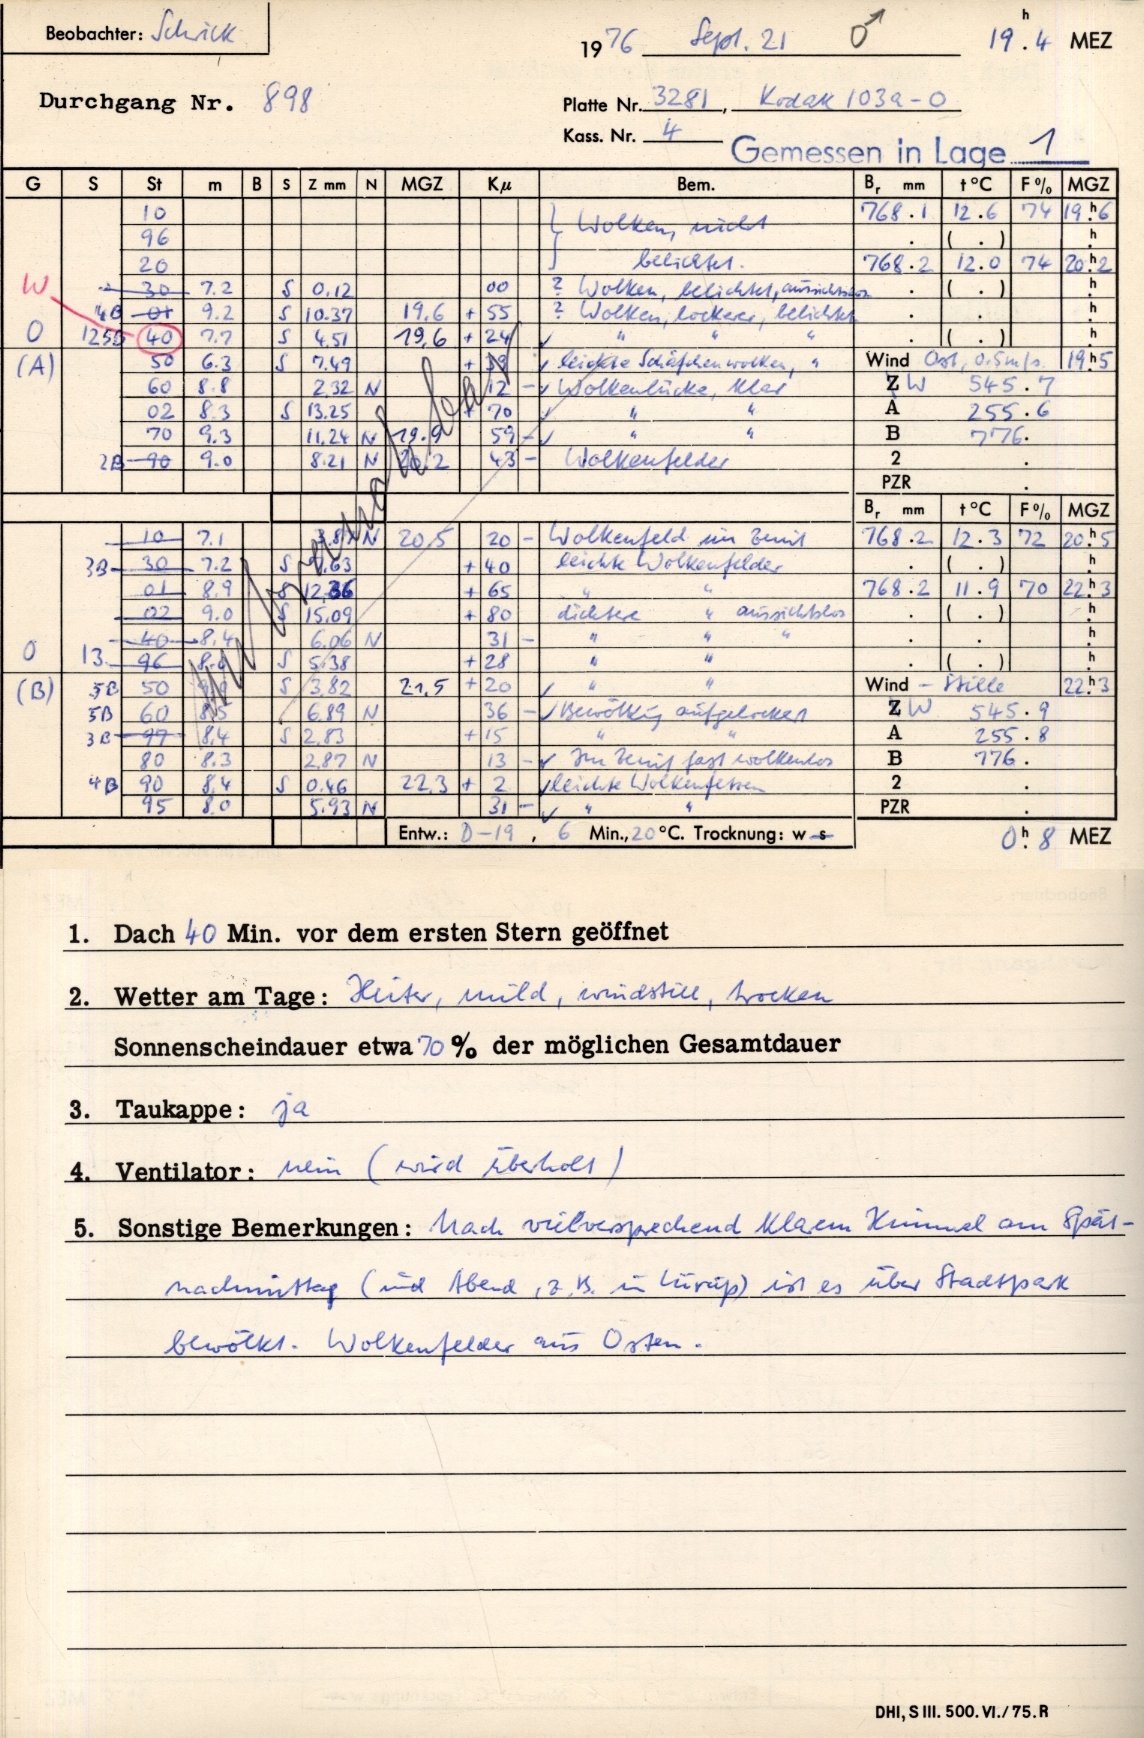 Beobachter: Schrick
1976 Sept. 21 ♂ 19h.4 MEZ
Durchgang Nr. 898
Platte Nr. 3281, Kodak 103a-O
Kass. Nr. 4
Gemessen in Lage 1
G S St m B S Z mm N MGZ Kμ Bem. Br mm t°C F% MGZ
10 Wolken, nicht 768.1 12.6 74 19h.6
96 . ( . ) h.
20 belichtet. 768.2 12.0 74 20h.2
W 30 7.2 S 0.12 00 ? Wolken, belichtet, aussichtslos . ( . ) h.
4B 01 9.2 S 10.37 19,6 + 55 ? Wolken, lockerer, belichtet . . h.
O 125B 40 7.7 S 4.51 19,6 + 24 ✓ " " " . ( . ) h.
(A) 50 6.3 S 7.49 + ✓ leichte Schäfchenwolken, " Wind Ost, 0.5m/s 19h5
60 8.8 2.32 N 12 - ✓ Wolkenlücke, klar Z W 545.7
02 8.3 S 13.25 + 70 ✓ " " A 255.6
70 9.3 11.24 N 19.9 59 - ✓ " " B 776.
2B 90 9.0 8.21 N 20,2 43 - Wolkenfelder 2 .
PZR .
Br mm t°C F% MGZ
10 7.1 N 20,5 20 - Wolkenfeld im Zenit 768.2 12.3 72 20h.5
3B 30 7.2 S 63 + 40 leichte Wolkenfelder . ( . ) h.
01 8,9 S 12,36 + 65 " " 768.2 11.9 70 22h.3
02 9.0 S 15.09 + 80 dichtere " aussichtslos . ( . ) h.
40 8,4 6.06 N 31 - " " " . . h.
O 13 96 S 5.38 + 28 " " . ( . ) h.
(B) 5B 50 S 3,82 21,5 + 20 ✓ " " Wind - Stille 22h.3
5B 60 8,5 6.89 N 36 - ✓ Bewölkg aufgelockert Z W 545.9
3B 97 8,4 S 2.83 + 15 " " A 255.8
80 8.3 2,87 N 13 - ✓ Im Zenit fast wolkenlos B 776.
4B 90 8,4 S 0.46 22,3 + 2 ✓ leichte Wolkenfetzen 2 .
95 8.0 5.93 N 31 - ✓ " " PZR .
Entw.: D-19, 6 Min., 20°C. Trocknung: w s 0h.8 MEZ
1. Dach 40 Min. vor dem ersten Stern geöffnet
2. Wetter am Tage: Heiter, mild, windstill, trocken
Sonnenscheindauer etwa 70 % der möglichen Gesamtdauer
3. Taukappe: ja
4. Ventilator: nein (wird überholt)
5. Sonstige Bemerkungen: Nach vielversprechend klarem Himmel am Spät-
nachmittag (und Abend, z.B. in Lurup) ist es über Stadtpark
bewölkt. Wolkenfelder aus Osten.
DHI, S III. 500. VI./75. R